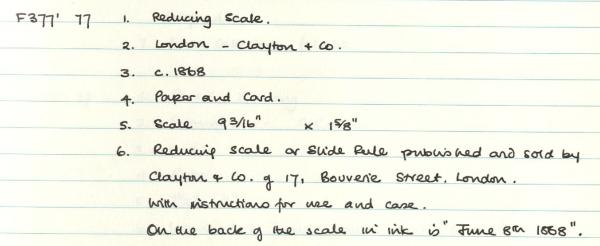 F377' 77 1. Reducing Scale.
2. London - Clayton + Co.
3. c. 1868
4. Paper and Card.
5. Scale 9 3/16" x 1 5/8"
6. Reducing scale or Slide Rule published and sold by
Clayton + Co. of 17, Bouverie Street, London.
With instructions for use and case.
On the back of the scale in ink is "June 8th 1868".